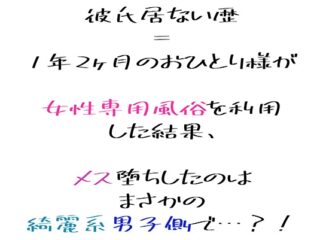 彼氏居ない歴
=
1年2ヶ月のおひとり様が
女性専用風俗を利用
した結果、
メス堕ちしたのは
まさかの
綺麗系男子側で…?!